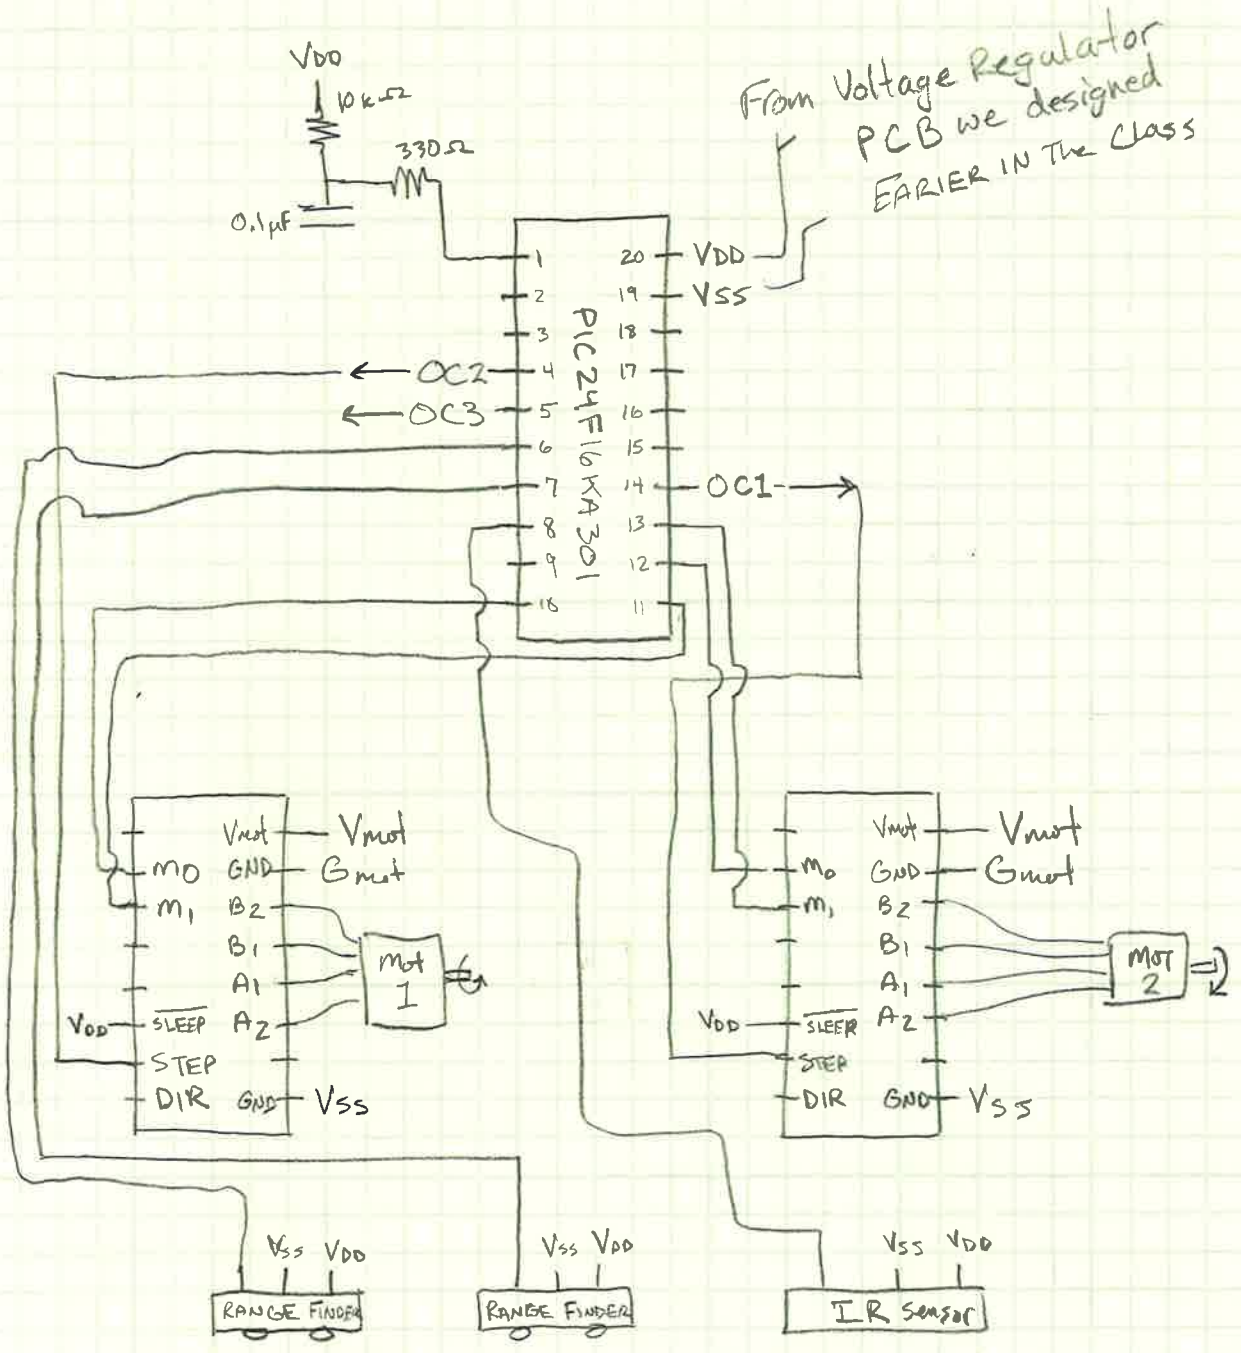 VDD
10kΩ
330Ω
0.1µF
From Voltage Regulator
PCB we designed
EARIER IN THE CLASS
PIC24F16KA301
1
2
3
OC2 4
OC3 5
6
7
8
9
10
20 VDD
19 VSS
18
17
16
15
14 OC1
13
12
11
Vmot Vmot
M0 GND Gmot
M1 B2
B1
A1
VDD SLEEP A2
STEP
DIR GND VSS
Mot
1
Vmot Vmot
M0 GND Gmot
M1 B2
B1
A1
VDD SLEEP A2
STEP
DIR GND VSS
MOT
2
VSS VDD
RANGE FINDER
VSS VDD
RANGE FINDER
VSS VDD
IR Sensor